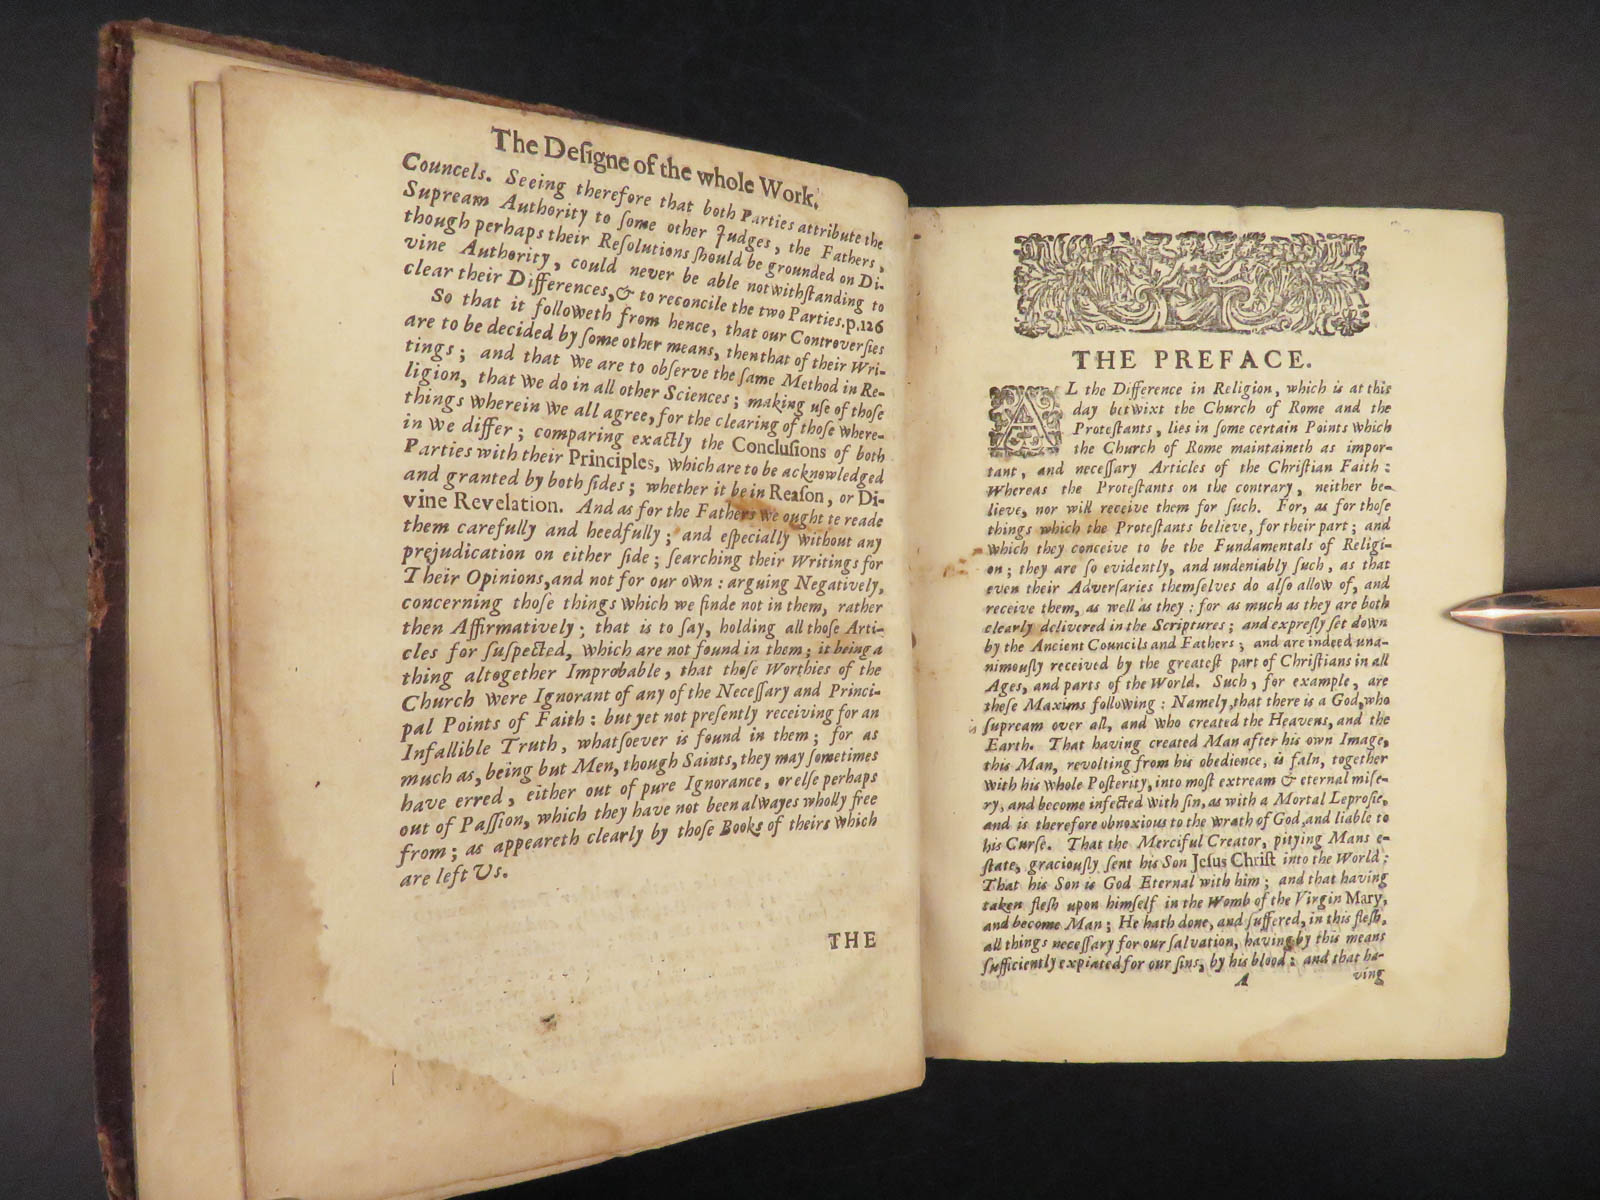 The Deſigne of the whole Work.
Councels. Seeing therefore that both Parties attribute the
Supream Authority to ſome other Judges, the Fathers,
though perhaps their Reſolutions ſhould be grounded on Di-
vine Authority, could never be able notwithſtanding to
clear their Differences, & to reconcile the two Parties. p. 126
So that it followeth from hence, that our Controverſies
are to be decided by ſome other means, then that of their Wri-
tings; and that we are to obſerve the ſame Method in Re-
ligion, that we do in all other Sciences; making uſe of thoſe
things wherein we all agree, for the clearing of thoſe where-
in we differ; comparing exactly the Concluſions of both
Parties with their Principles, which are to be acknowledged
and granted by both ſides; whether it be in Reaſon, or Di-
vine Revelation. And as for the Fathers we ought te reade
them carefully and heedfully; and eſpecially without any
prejudication on either ſide; ſearching their Writings for
Their Opinions, and not for our own: arguing Negatively,
concerning thoſe things which we finde not in them, rather
then Affirmatively; that is to ſay, holding all thoſe Arti-
cles for ſuſpected, which are not found in them; it being a
thing altogether Improbable, that thoſe Worthies of the
Church were Ignorant of any of the Neceſſary and Princi-
pal Points of Faith: but yet not preſently receiving for an
Infallible Truth, whatſoever is found in them; for as
much as, being but Men, though Saints, they may ſometimes
have erred, either out of pure Ignorance, or elſe perhaps
out of Paſſion, which they have not been alwayes wholly free
from; as appeareth clearly by thoſe Books of theirs which
are left Us.
THE
THE PREFACE.
AL the Difference in Religion, which is at this
day betwixt the Church of Rome and the
Proteſtants, lies in ſome certain Points which
the Church of Rome maintaineth as impor-
tant, and neceſſary Articles of the Chriſtian Faith:
Whereas the Proteſtants on the contrary, neither be-
lieve, nor will receive them for ſuch. For, as for thoſe
things which the Proteſtants believe, for their part; and
which they conceive to be the Fundamentals of Religi-
on; they are ſo evidently, and undeniably ſuch, as that
even their Adverſaries themſelves do alſo allow of, and
receive them, as well as they: for as much as they are both
clearly delivered in the Scriptures; and expreſly ſet down
by the Ancient Councils and Fathers; and are indeed una-
nimouſly received by the greateſt part of Chriſtians in all
Ages, and parts of the World. Such, for example, are
theſe Maxims following: Namely, that there is a God, who
is ſupream over all, and who created the Heavens, and the
Earth. That having created Man after his own Image,
this Man, revolting from his obedience, is faln, together
with his whole Poſterity, into moſt extream & eternal miſe-
ry, and become infected with ſin, as with a Mortal Leproſie,
and is therefore obnoxious to the wrath of God, and liable to
his Curſe. That the Merciful Creator, pitying Mans e-
ſtate, graciouſly ſent his Son Jeſus Chriſt into the World;
That his Son is God Eternal with him; and that having
taken fleſh upon himſelf in the Womb of the Virgin Mary,
and become Man; He hath done, and ſuffered, in this fleſh,
all things neceſſary for our ſalvation, having by this means
ſufficiently expiated for our ſins, by his blood: and that ha-
A ving